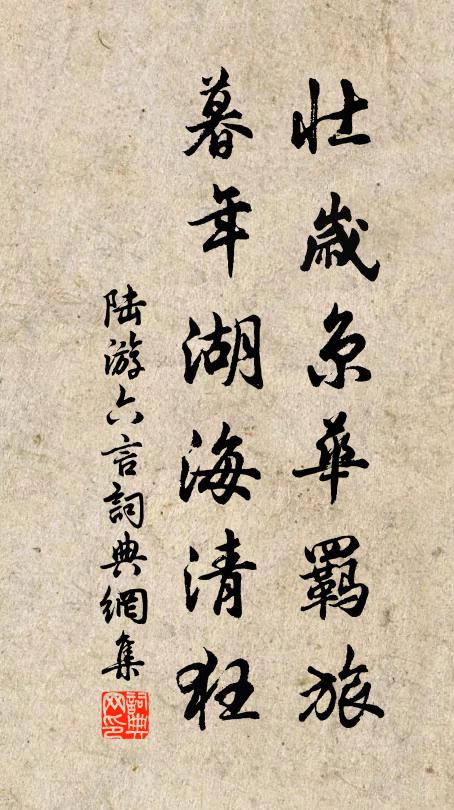 壮歲京華羈旅
暮年湖海清狂
陆游六言詞典網集
詞典網印